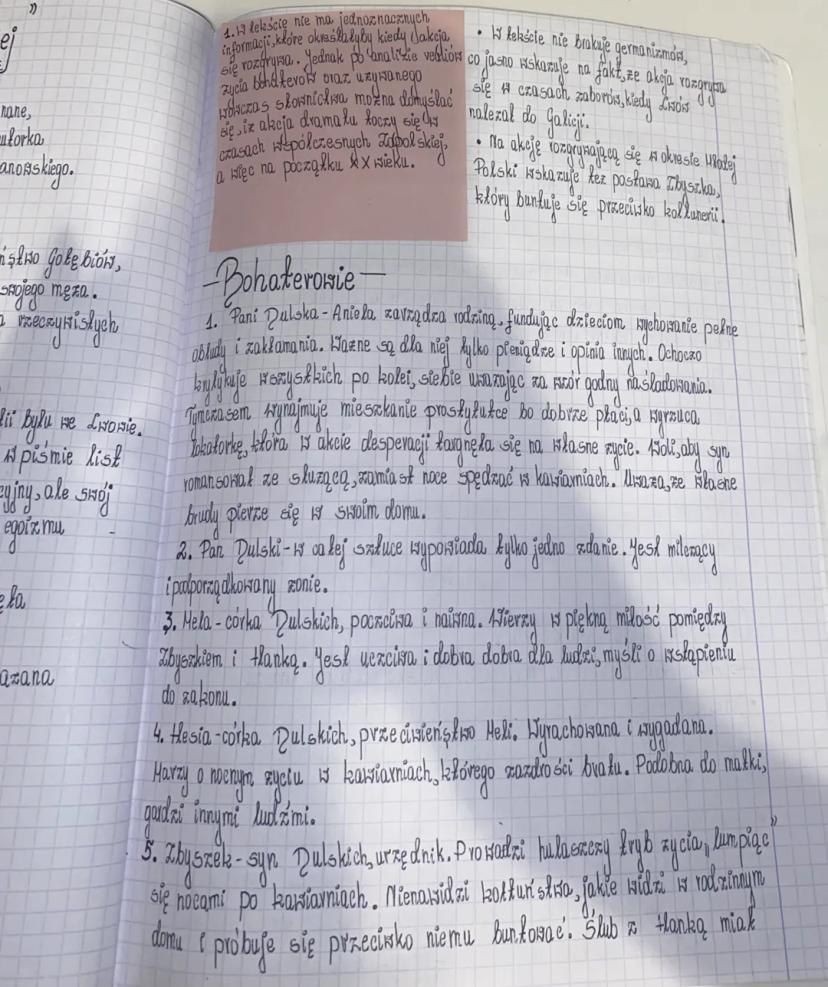 "
ej
nane,
utorka
anowskiego.
ństwo Gołębiów,
swojego męża.
a rzeczywistych
lii było we Lwowie.
w piśmie list
cyjny, ale swój
egoizmu -
ęła
azana
1. W tekście nie ma jednoznacznych
informacji, które określałyby kiedy akcja
się rozgrywa. Jednak po analizie
życia bohaterów oraz używanego
wówczas słownictwa można domyślać
się, iż akcja dramatu toczy się w
czasach współczesnych Zapolskiej,
a więc na początku XX wieku.
• W tekście nie brakuje germanizmów,
co jasno wskazuje na fakt, że akcja rozgrywa
się w czasach zaborów, kiedy Lwów
należał do Galicji.
• Na akcję rozgrywającą się w okresie Młodej
Polski wskazuje też postawa Zbyszka,
który buntuje się przeciwko kołtunerii.
- Bohaterowie -
1. Pani Dulska - Aniela zarządza rodziną, fundując dzieciom wychowanie pełne
obłudy i zakłamania. Ważne są dla niej tylko pieniądze i opinia innych. Ochoczo
krytykuje wszystkich po kolei, siebie uważając za wzór godny naśladowania.
Tymczasem wynajmuje mieszkanie prostytutce bo dobrze płaci, a wyrzuca
lokatorkę, która w akcie desperacji targnęła się na własne życie. Woli, aby syn
romansował ze służącą, zamiast noce spędzać w kawiarniach. Uważa, że własne
brudy pierze się w swoim domu.
2. Pan Dulski - w całej sztuce wypowiada tylko jedno zdanie. Jest milczący
i podporządkowany żonie.
3. Mela - córka Dulskich, poczciwa i naiwna. Wierzy w piękną miłość pomiędzy
Zbyszkiem i Hanką. Jest uczciwa i dobra dobra dla ludzi, myśli o wstąpieniu
do zakonu.
4. Hesia - córka Dulskich, przeciwieństwo Meli. Wyrachowana i wygadana.
Marzy o nocnym życiu w kawiarniach, którego zazdrości bratu. Podobna do matki,
gardzi innymi ludźmi.
5. Zbyszek - syn Dulskich, urzędnik. Prowadzi hulaszczy tryb życia, „lumpiąc"
się nocami po kawiarniach. Nienawidzi kołtuństwa, jakie widzi w rodzinnym
domu i próbuje się przeciwko niemu buntować. Ślub z Hanką miał